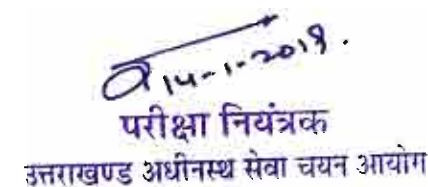 14-1-2019.
परीक्षा नियंत्रक
उत्तराखण्ड अधीनस्थ सेवा चयन आयोग